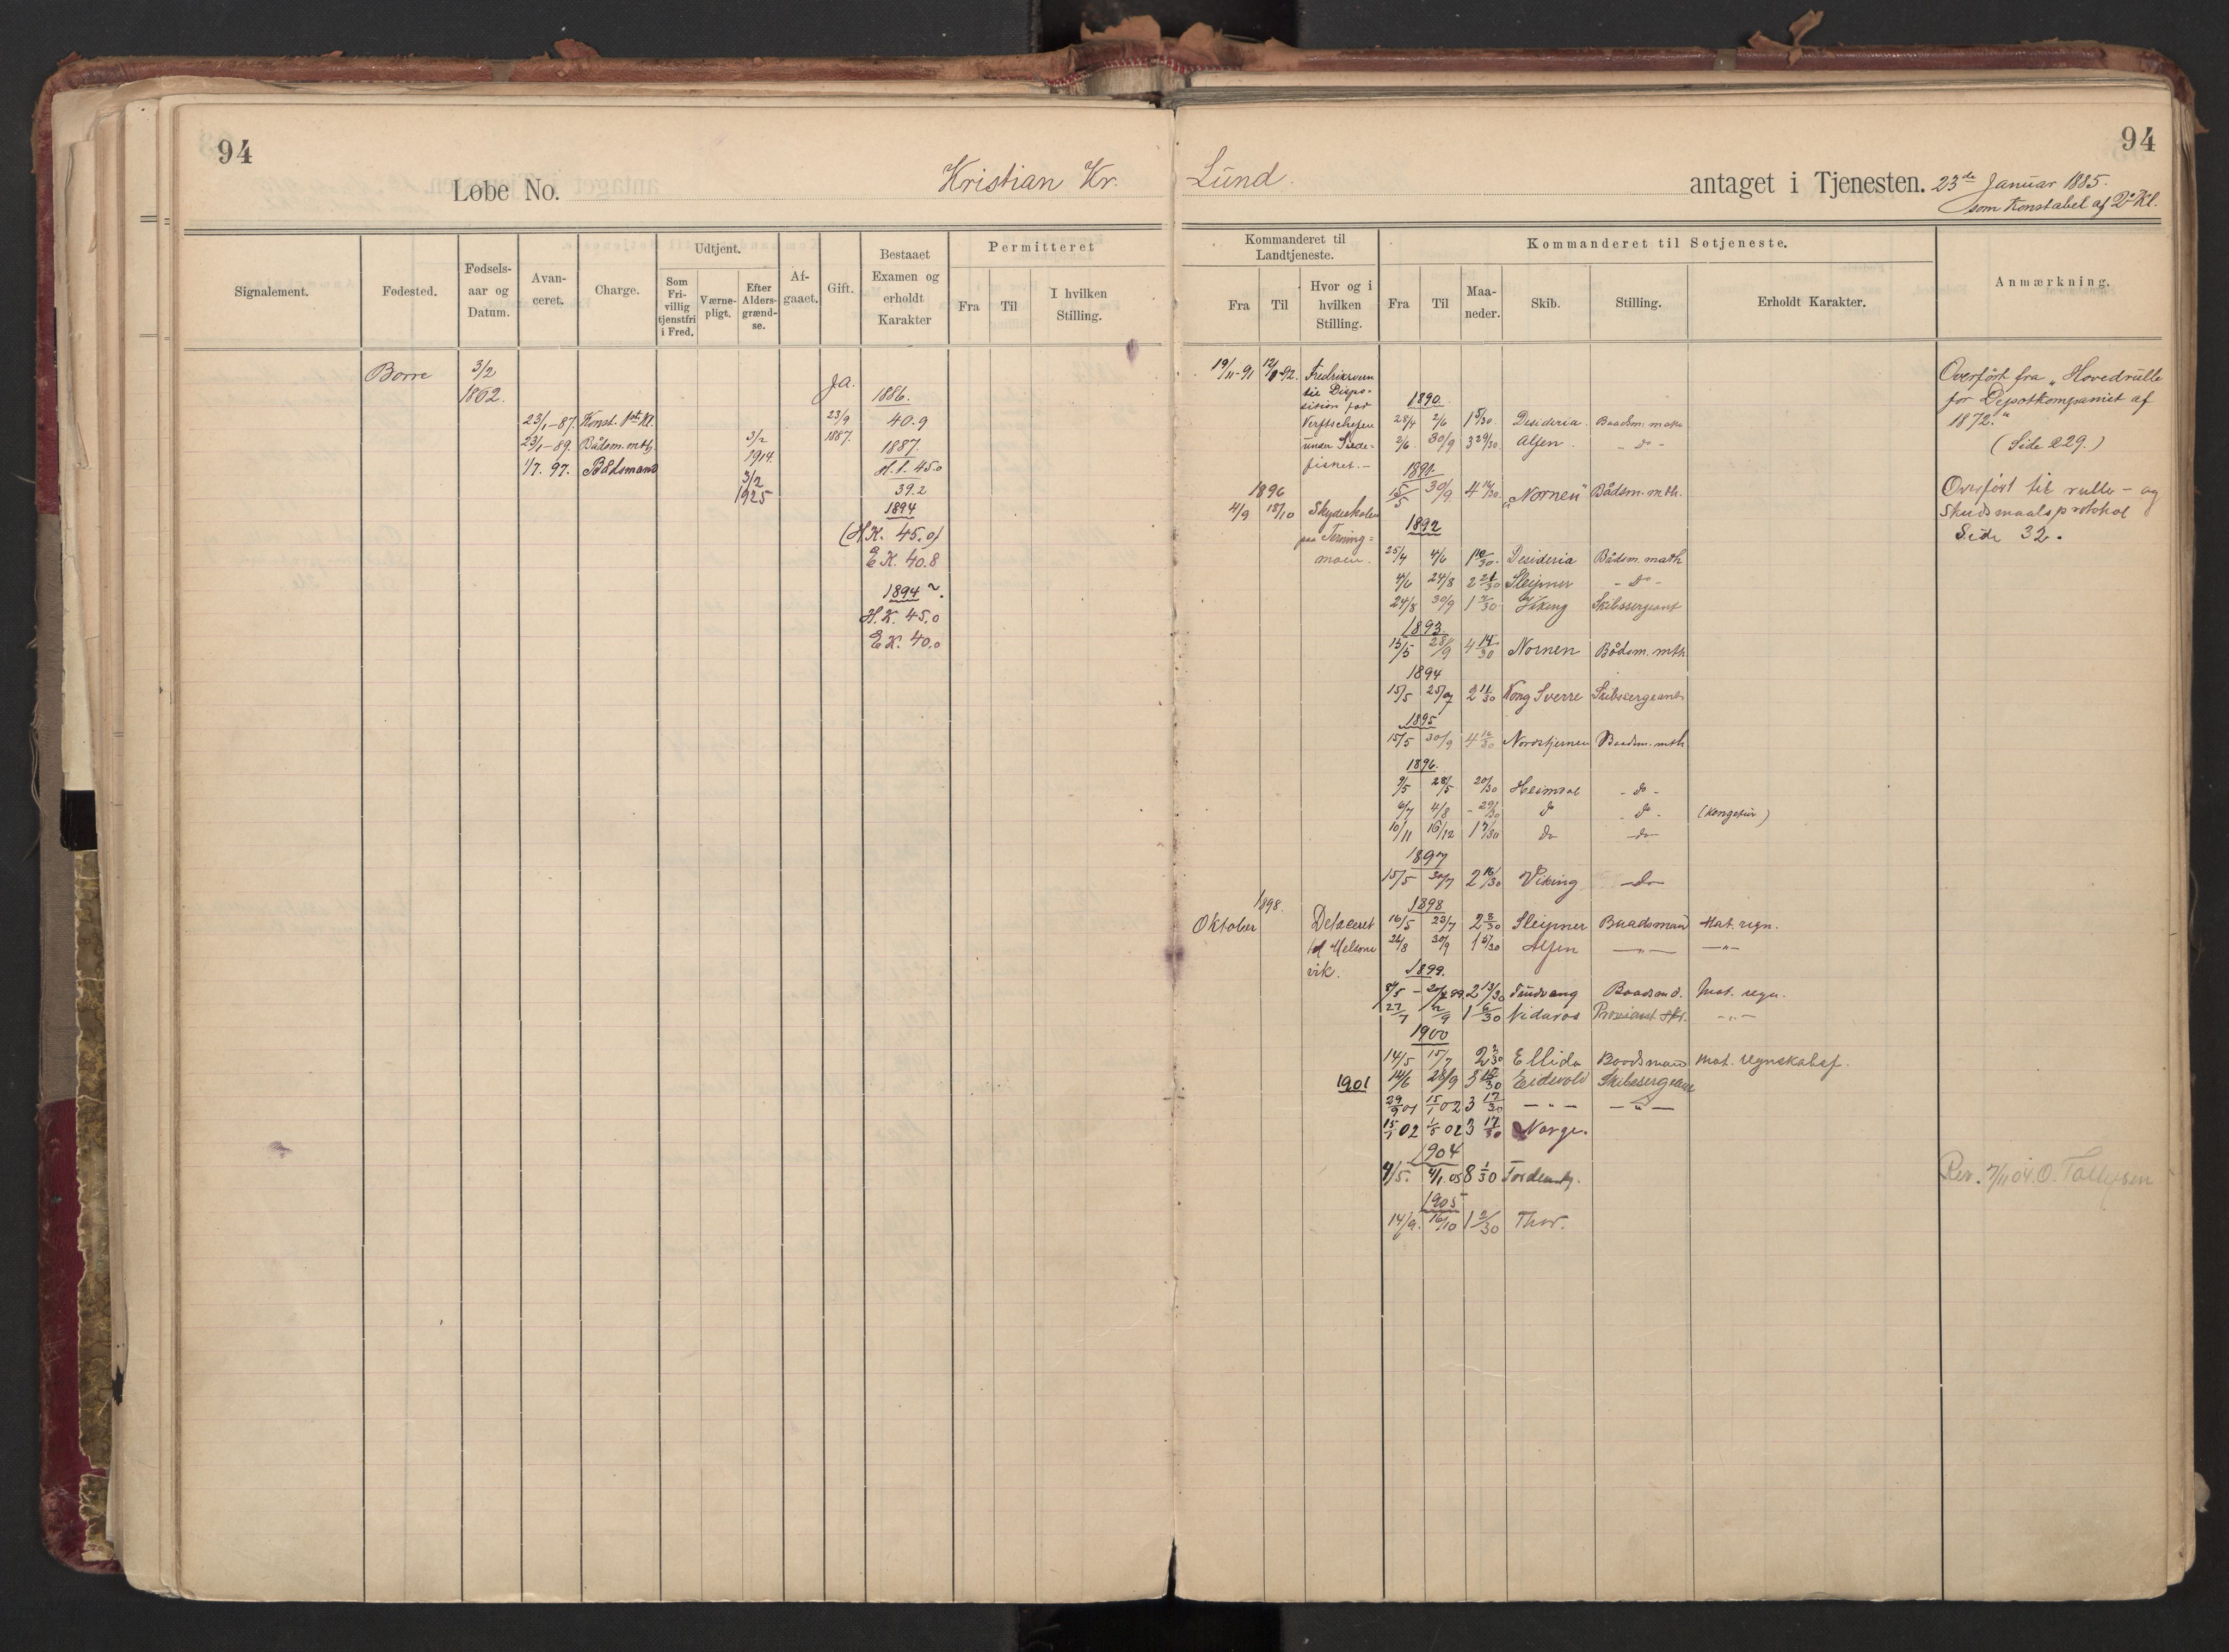 94
Løbe No.
Kristian Kr.
Signalement.
Fødested.
Fødsels-
aar og
Datum.
Avan-
ceret.
Charge.
Udtjent.
Som
Fri-
villig
tjenstfri
i Fred.
Værne-
pligt.
Efter
Alders-
grænd-
se.
Af-
gaaet.
Gift.
Bestaaet
Examen og
erholdt
Karakter
Permitteret
Fra
Til
I hvilken
Stilling.
Borre
3/2
1862.
23/1-87. Konst. 1ste Kl.
23/1-89. Bådsm. mth.
1/7. 97. Bådsmand
3/2
1914
3/2
1925
Ja.
23/9
1887.
1886.
40.9
1887.
H.K. 45.0
39.2
1894
(H.K. 45.0)
E.K. 40.8
1894
H.K. 45.0
E.K. 40.0
94
Lund.
antaget i Tjenesten. 23de Januar 1885.
som Konstabel af 2. Kl.
Kommanderet til
Landtjeneste.
Fra
Til
Hvor og i
hvilken
Stilling.
Kommanderet til Søtjeneste.
Fra
Til
Maa-
neder.
Skib.
Stilling.
Erholdt Karakter.
Anmærkning.
19/11-91 12/ -92. Fredriksvern
til Dispo-
sition for
Verftschefen
under
1896
4/9 15/10 Skydeskolen
paa Terning=
moen.
1898.
Oktober Detaceret
til Melsom
vik.
1901
1890.
28/4 2/6 1 5/30 Desideria. Baadsm. math
2/6 30/9 3 29/30 Alfen. - do -
1891.
15/5 30/9 4 16/30 "Nornen" Bådsm. mth.
1892
25/4 4/6 1 10/30 Desideria Bådsm. math
4/6 24/8 2 21/30 Sleipner - do -
24/8 30/9 1 7/30 Viking Skibssergeant
1893.
15/5 28/9 4 14/30 Nornen Bådsm. mth
1894
15/5 25/7 2 11/30 Kong Sverre Skibssergeant
1895
15/5 30/9 4 16/30 Nordstjernen Baadsm. mth.
1896.
9/5 28/5 20/30 Heimdal - do -
6/7 4/8 - 29/30 do do - (Kongetur)
10/11 16/12 1 7/30 do do
1897
15/5 30/7 2 16/30 Viking - do -
1898
16/5 23/7 2 8/30 Sleipner Baadsmand Mat. regn.
26/8 30/9 1 5/30 Alfen — " — — " —
1899.
8/5 - 20/7 99. 2 13/30 Tindvang Baadsmd. Mat. regn.
27/7 2/9 1 6/30 Nidaros Proviant skr. - " -
1900
14/5 15/7 2 2/30 Ellida Baadsmand Mat. regnskabsf.
14/6 28/9 3 15/30 Eidsvold Skibssergeant
29/9 01 15/1 02 3 17/30 — " — — " —
15/1 02 1/5 02 3 17/30 Norge.
1904
4/5. 4/1.05 8 1/30 Tordensk.
1905
14/9. 16/10 1 2/30 Thor.
Overført fra "Hovedrulle
for Depotkompaniet af
1872."
(Side 229.)
Overført til rulle- og
skudsmaalsprotokol
Side 32.
Rev. 7/11 04. O. Tollefsen